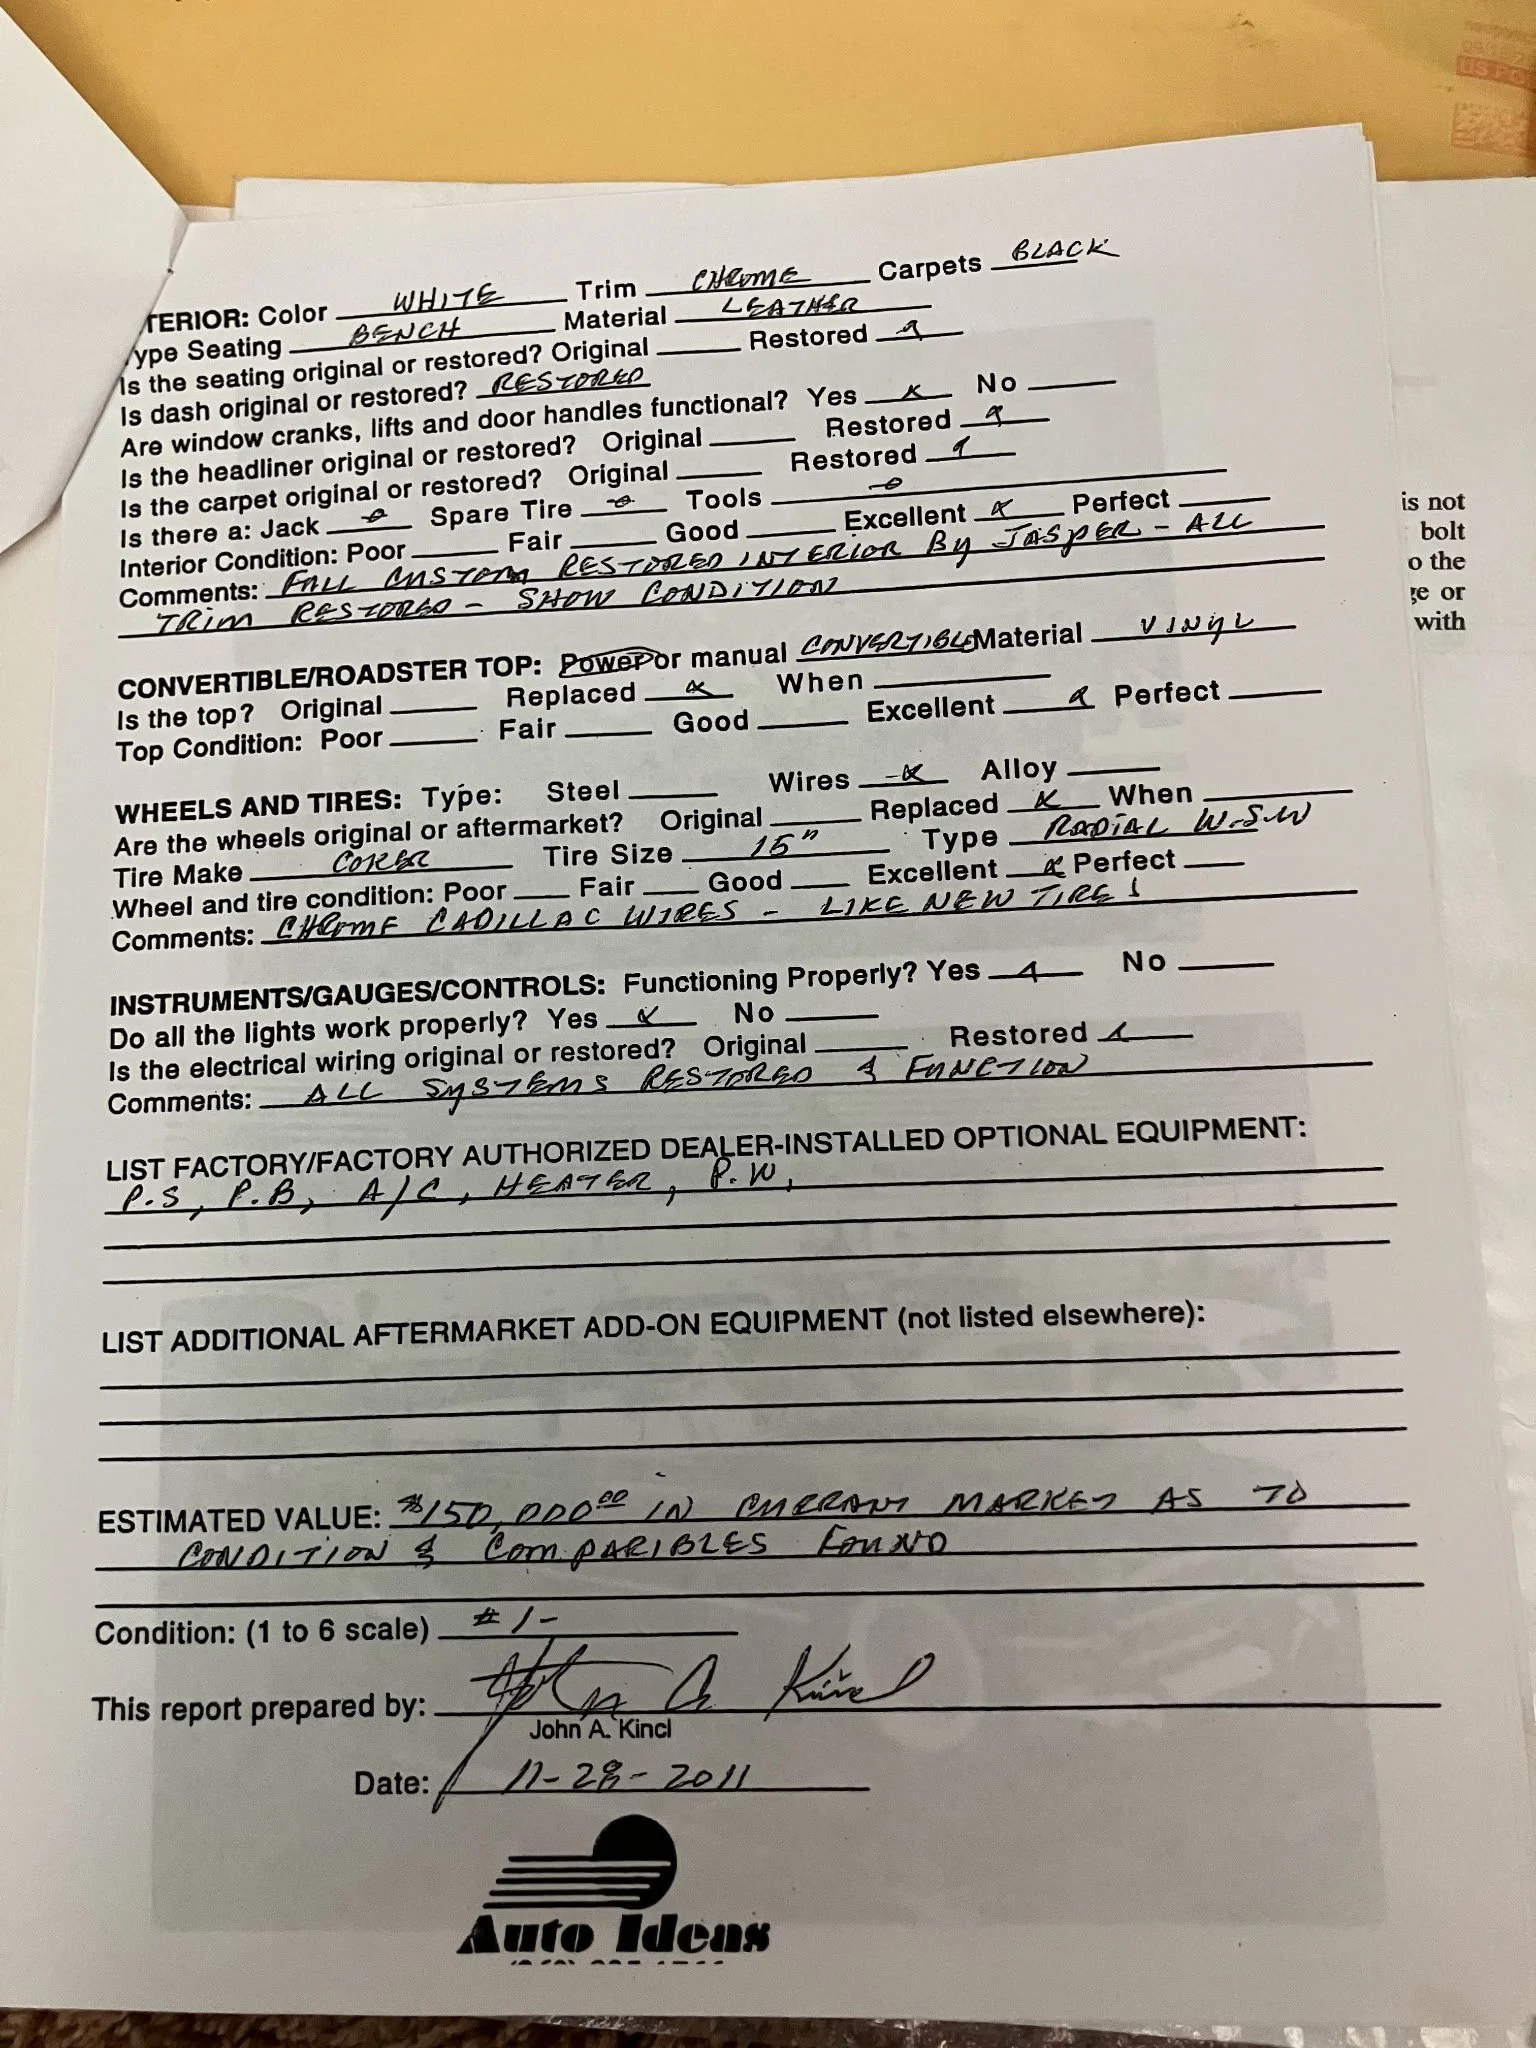 TERIOR: Color WHITE Trim CHROME Carpets BLACK
ype Seating BENCH Material LEATHER
Is the seating original or restored? Original ____ Restored x
Is dash original or restored? RESTORED
Are window cranks, lifts and door handles functional? Yes x No ____
Is the headliner original or restored? Original ____ Restored x
Is the carpet original or restored? Original ____ Restored x
Is there a: Jack -0- Spare Tire -0- Tools -0-
Interior Condition: Poor ____ Fair ____ Good ____ Excellent x Perfect ____
Comments: FULL CUSTOM RESTORED INTERIOR By JASPER - ALL
TRIM RESTORED - SHOW CONDITION
CONVERTIBLE/ROADSTER TOP: Power or manual CONVERTIBLE Material VINYL
Is the top? Original ____ Replaced x When ____
Top Condition: Poor ____ Fair ____ Good ____ Excellent x Perfect ____
WHEELS AND TIRES: Type: Steel ____ Wires x Alloy ____
Are the wheels original or aftermarket? Original ____ Replaced x When ____
Tire Make COKER Tire Size 15" Type RADIAL W.S.W
Wheel and tire condition: Poor ____ Fair ____ Good ____ Excellent x Perfect ____
Comments: CHROME CADILLAC WIRES - LIKE NEW TIRE!
INSTRUMENTS/GAUGES/CONTROLS: Functioning Properly? Yes x No ____
Do all the lights work properly? Yes x No ____
Is the electrical wiring original or restored? Original ____ Restored x
Comments: ALL SYSTEMS RESTORED & FUNCTION
LIST FACTORY/FACTORY AUTHORIZED DEALER-INSTALLED OPTIONAL EQUIPMENT:
P.S, P.B, A/C, HEATER, P.W,
LIST ADDITIONAL AFTERMARKET ADD-ON EQUIPMENT (not listed elsewhere):
ESTIMATED VALUE: $150,000.00 IN CURRANT MARKET AS TO
CONDITION & COMPARIBLES FOUND
Condition: (1 to 6 scale) #1-
This report prepared by: John A Kincl
John A. Kincl
Date: 11-28-2011
Auto Ideas
is not
bolt
o the
ge or
with